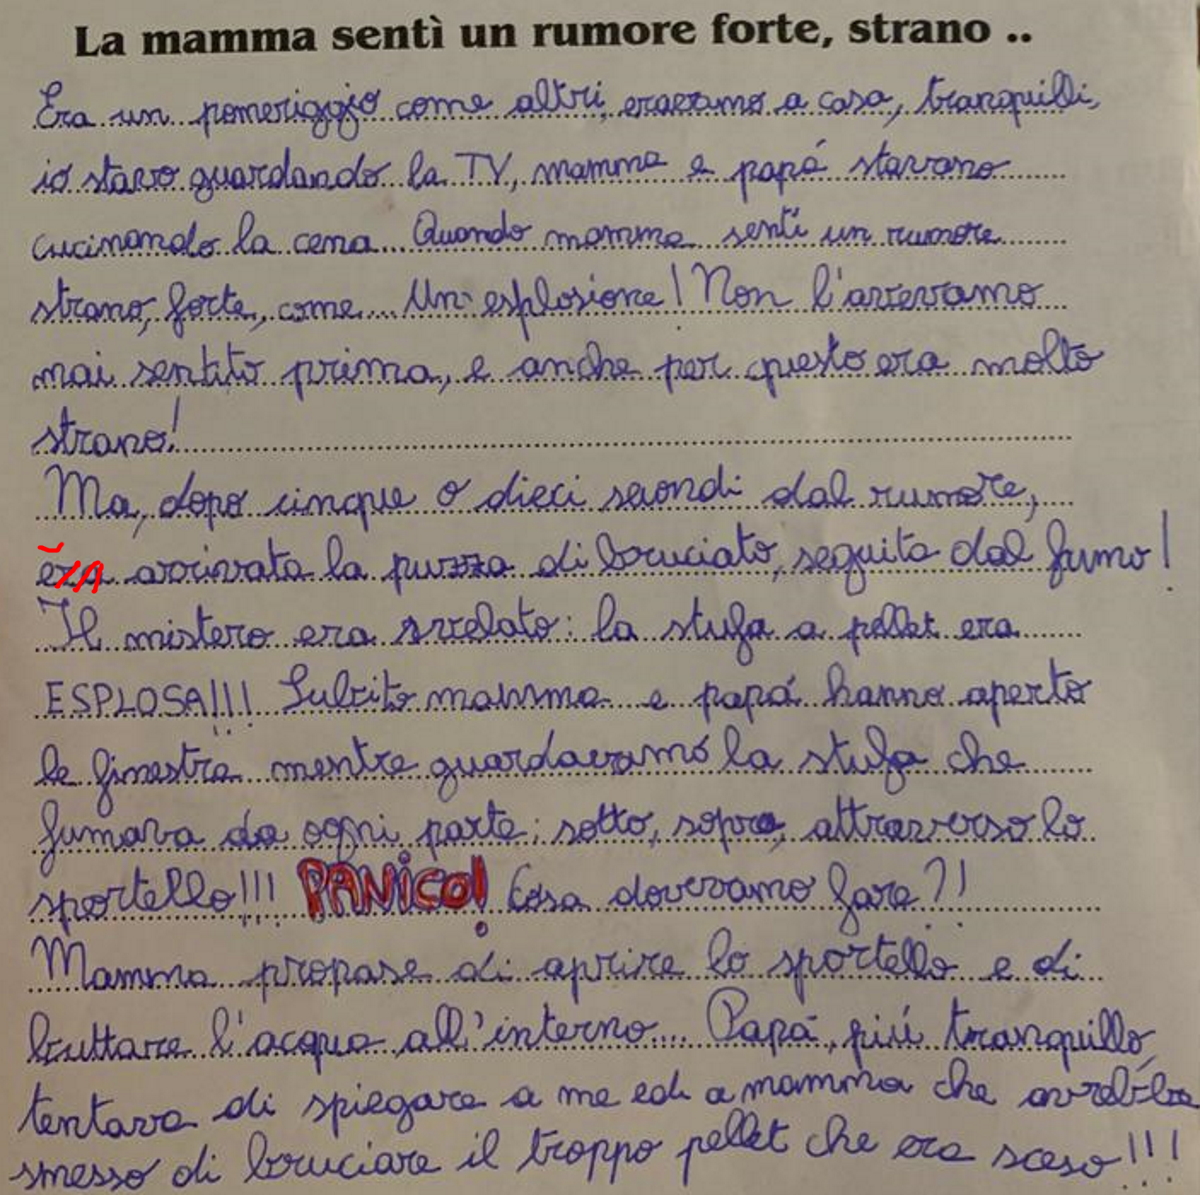 La mamma sentì un rumore forte, strano ..
Era un pomeriggio come altri, eravamo a casa, tranquilli,
io stavo guardando la TV, mamma e papá stavano
cucinando la cena... Quando mamma sentí un rumore
strano, forte, come... Un'esplosione! Non l'avevamo
mai sentito prima, e anche per questo era molto
strano!
Ma, dopo cinque o dieci secondi dal rumore,
era arrivata la puzza di bruciato, seguita dal fumo!
Il mistero era svelato: la stufa a pellet era
ESPLOSA!!! Subito mamma e papá hanno aperto
le finestre mentre guardavamo la stufa che
fumava da ogni parte: sotto, sopra, attraverso lo
sportello!!! PANICO! Cosa dovevamo fare?!
Mamma propose di aprire lo sportello e di
buttare l'acqua all'interno... Papá, piú tranquillo,
tentava di spiegare a me ed a mamma che avrebbe
smesso di bruciare il troppo pellet che era sceso!!!